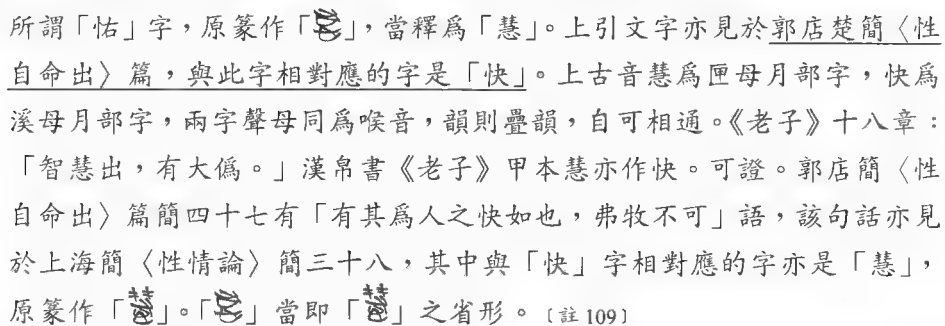 所謂「怙」字，原篆作「」，當釋爲「慧」。上引文字亦見於郭店楚簡〈性
自命出〉篇，與此字相對應的字是「快」。上古音慧爲匣母月部字，快爲
溪母月部字，兩字聲母同爲喉音，韻則疊韻，自可相通。《老子》十八章：
「智慧出，有大僞。」漢帛書《老子》甲本慧亦作快。可證。郭店簡〈性
自命出〉篇簡四十七有「有其爲人之快如也，弗牧不可」語，該句話亦見
於上海簡〈性情論〉簡三十八，其中與「快」字相對應的字亦是「慧」，
原篆作「」。「」當即「」之省形。〔註109〕